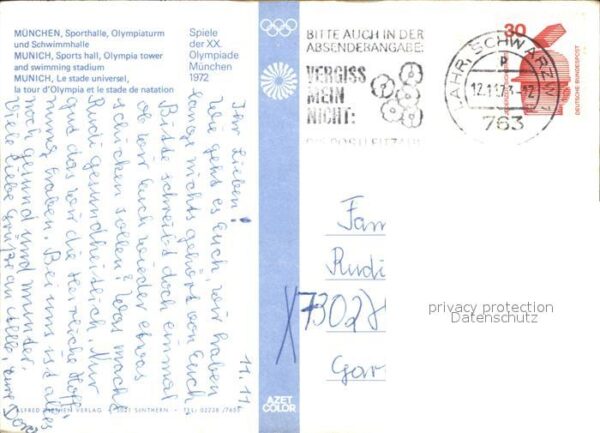 MÜNCHEN, Sporthalle, Olympiaturm
und Schwimmhalle
MUNICH, Sports hall, Olympia tower
and swimming stadium
MUNICH, Le stade universel,
la tour d'Olympia et le stade de natation
Spiele
der XX.
Olympiade
München
1972
11.11
Ihr Lieben!
Wie geht es Euch, wir haben
lange nichts gehört von Euch
Bitte schreibt doch einmal
ob wir Euch wieder etwas
schicken sollen? Was macht
Rudi gesundheitlich. Nur
gut das wir die herrliche Hoff-
nung haben. Bei uns ist alles
noch gesund und munter.
Viele liebe Grüße an alle, eure Dora
VERLAG
SINTHERN
TEL: 02238 /7455
AZET
COLOR
BITTE AUCH IN DER
ABSENDERANGABE:
VERGISS
MEIN
NICHT:
DIE POSTLEITZAHL
LAHR, SCHWARZW 1
p
12.11.73-12
763
30
DEUTSCHE BUNDESPOST
Fam
Rudi
X7302
Gar
privacy protection
Datenschutz